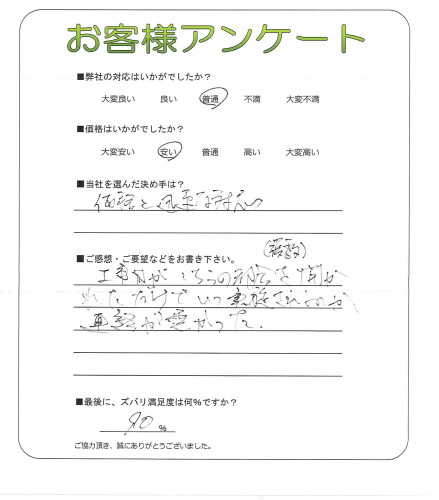 お客様アンケート
■弊社の対応はいかがでしたか?
大変良い 良い 普通 不満 大変不満
■価格はいかがでしたか?
大変安い 安い 普通 高い 大変高い
■当社を選んだ決め手は?
価格と迅速な対応
■ご感想・ご要望などをお書き下さい。
工事日がこちらの予定を聞か
れただけでいつ
連絡が悪かった.
■最後に、ズバリ満足度は何%ですか?
90 %
ご協力頂き、誠にありがとうございました。